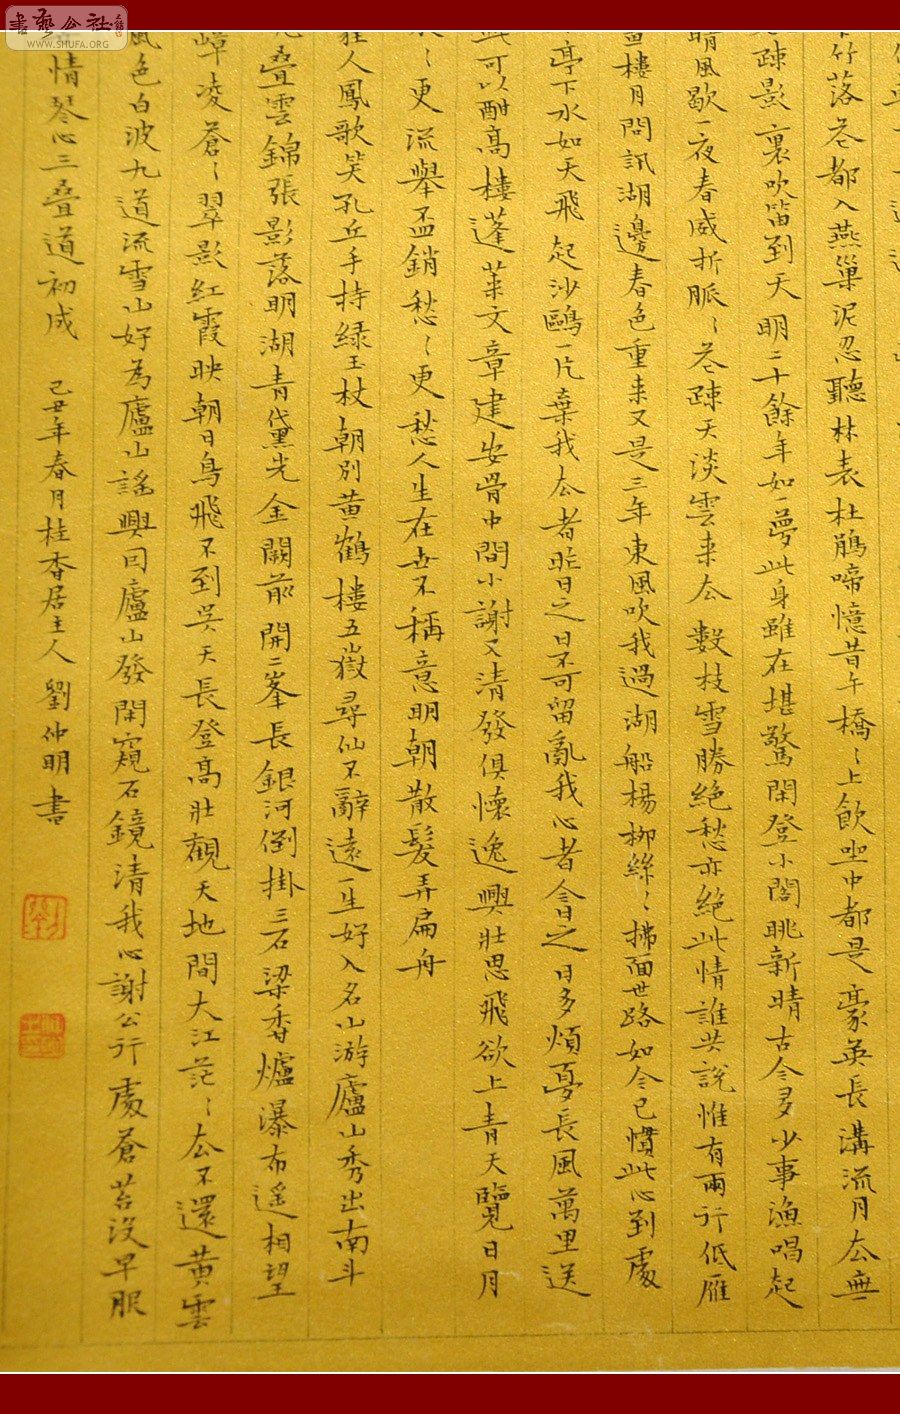 書藝公社
WWW.SHUFA.ORG
竹落花都入燕巢泥忍聽林表杜鵑啼憶昔午橋〻上飲坐中都是豪英長溝流月去無
疎影裏吹笛到天明二十餘年如一夢此身雖在堪驚閑登小閣眺新晴古今多少事漁唱起
晴風歇一夜春威折脈〻花疎天淡雲来去數枝雪勝絕愁亦絕此情誰共說惟有兩行低雁
畫樓月問訊湖邊春色重来又是三年東風吹我過湖船楊柳絲〻拂面世路如今已慣此心到處
亭下水如天飛起沙鷗一片棄我去者昨日之日不可留亂我心者今日之日多煩憂長風萬里送
此可以酣高樓蓬萊文章建安骨中間小謝又清發俱懷逸興壯思飛欲上青天覽日月
〻更流舉盃銷愁〻更愁人生在世不稱意明朝散髮弄扁舟
狂人鳳歌笑孔丘手持綠玉杖朝別黃鶴樓五嶽尋仙不辭遠一生好入名山游廬山秀出南斗
疊雲錦張影落明湖青黛光金闕前開二峯長銀河倒掛三石梁香爐瀑布遙相望
嶂凌蒼〻翠影紅霞映朝日鳥飛不到吳天長登高壯觀天地間大江茫〻去不還黃雲
風色白波九道流雪山好為廬山謠興因廬山發閑窺石鏡清我心謝公行處蒼苔沒早服
情琴心三疊道初成 己丑年春月桂香居主人劉仲明書